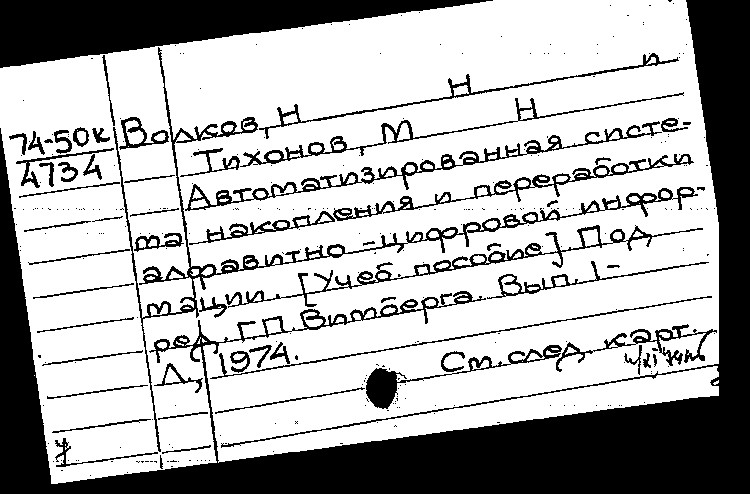 74-50к
4734
Волков, Н Н и
Тихонов, М Н
Автоматизированная систе-
ма накопления и переработки
алфавитно-цифровой инфор-
мации. [Учеб. пособие]. Под
ред. Г.П. Витберга. Вып. 1-
Л., 1974.
См. след. карт.